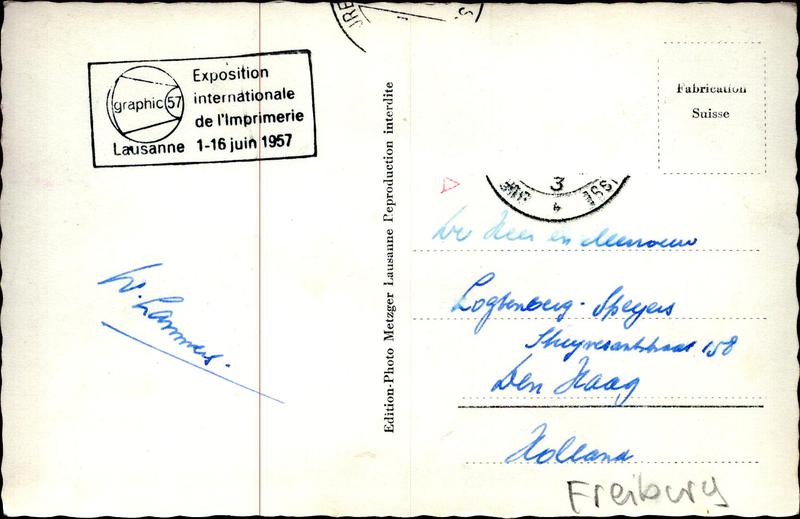 graphic 57
Exposition
internationale
de l'Imprimerie
Lausanne 1-16 juin 1957
W. Lammers.
Edition-Photo Metzger Lausanne Peproduction interdite
Fabrication
Suisse
3
De Heer en Mevrouw
Logtenberg-Speyers
Stuyvesantstraat 158
Den Haag
Holland
Freiburg